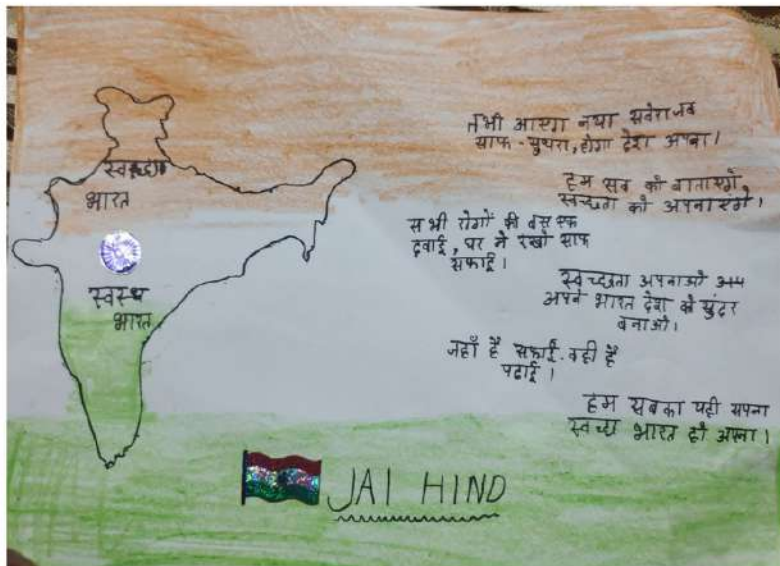 स्वच्छ
भारत
स्वस्थ
भारत
तभी आएगा नया सवेरा जब
साफ-सुथरा, होगा देश अपना।
हम सब को बाताएगे
स्वच्छता को अपनाएगे।
सभी रोगों की बस एक
दवाई, घर में रखो साफ
सफाई।
स्वच्छता अपनाओ
अपने भारत देश को सुंदर
बनाओ।
जहाँ है सफाई वही है
पढाई।
हम सबका यही सपना
स्वच्छ भारत हो अपना।
JAI HIND